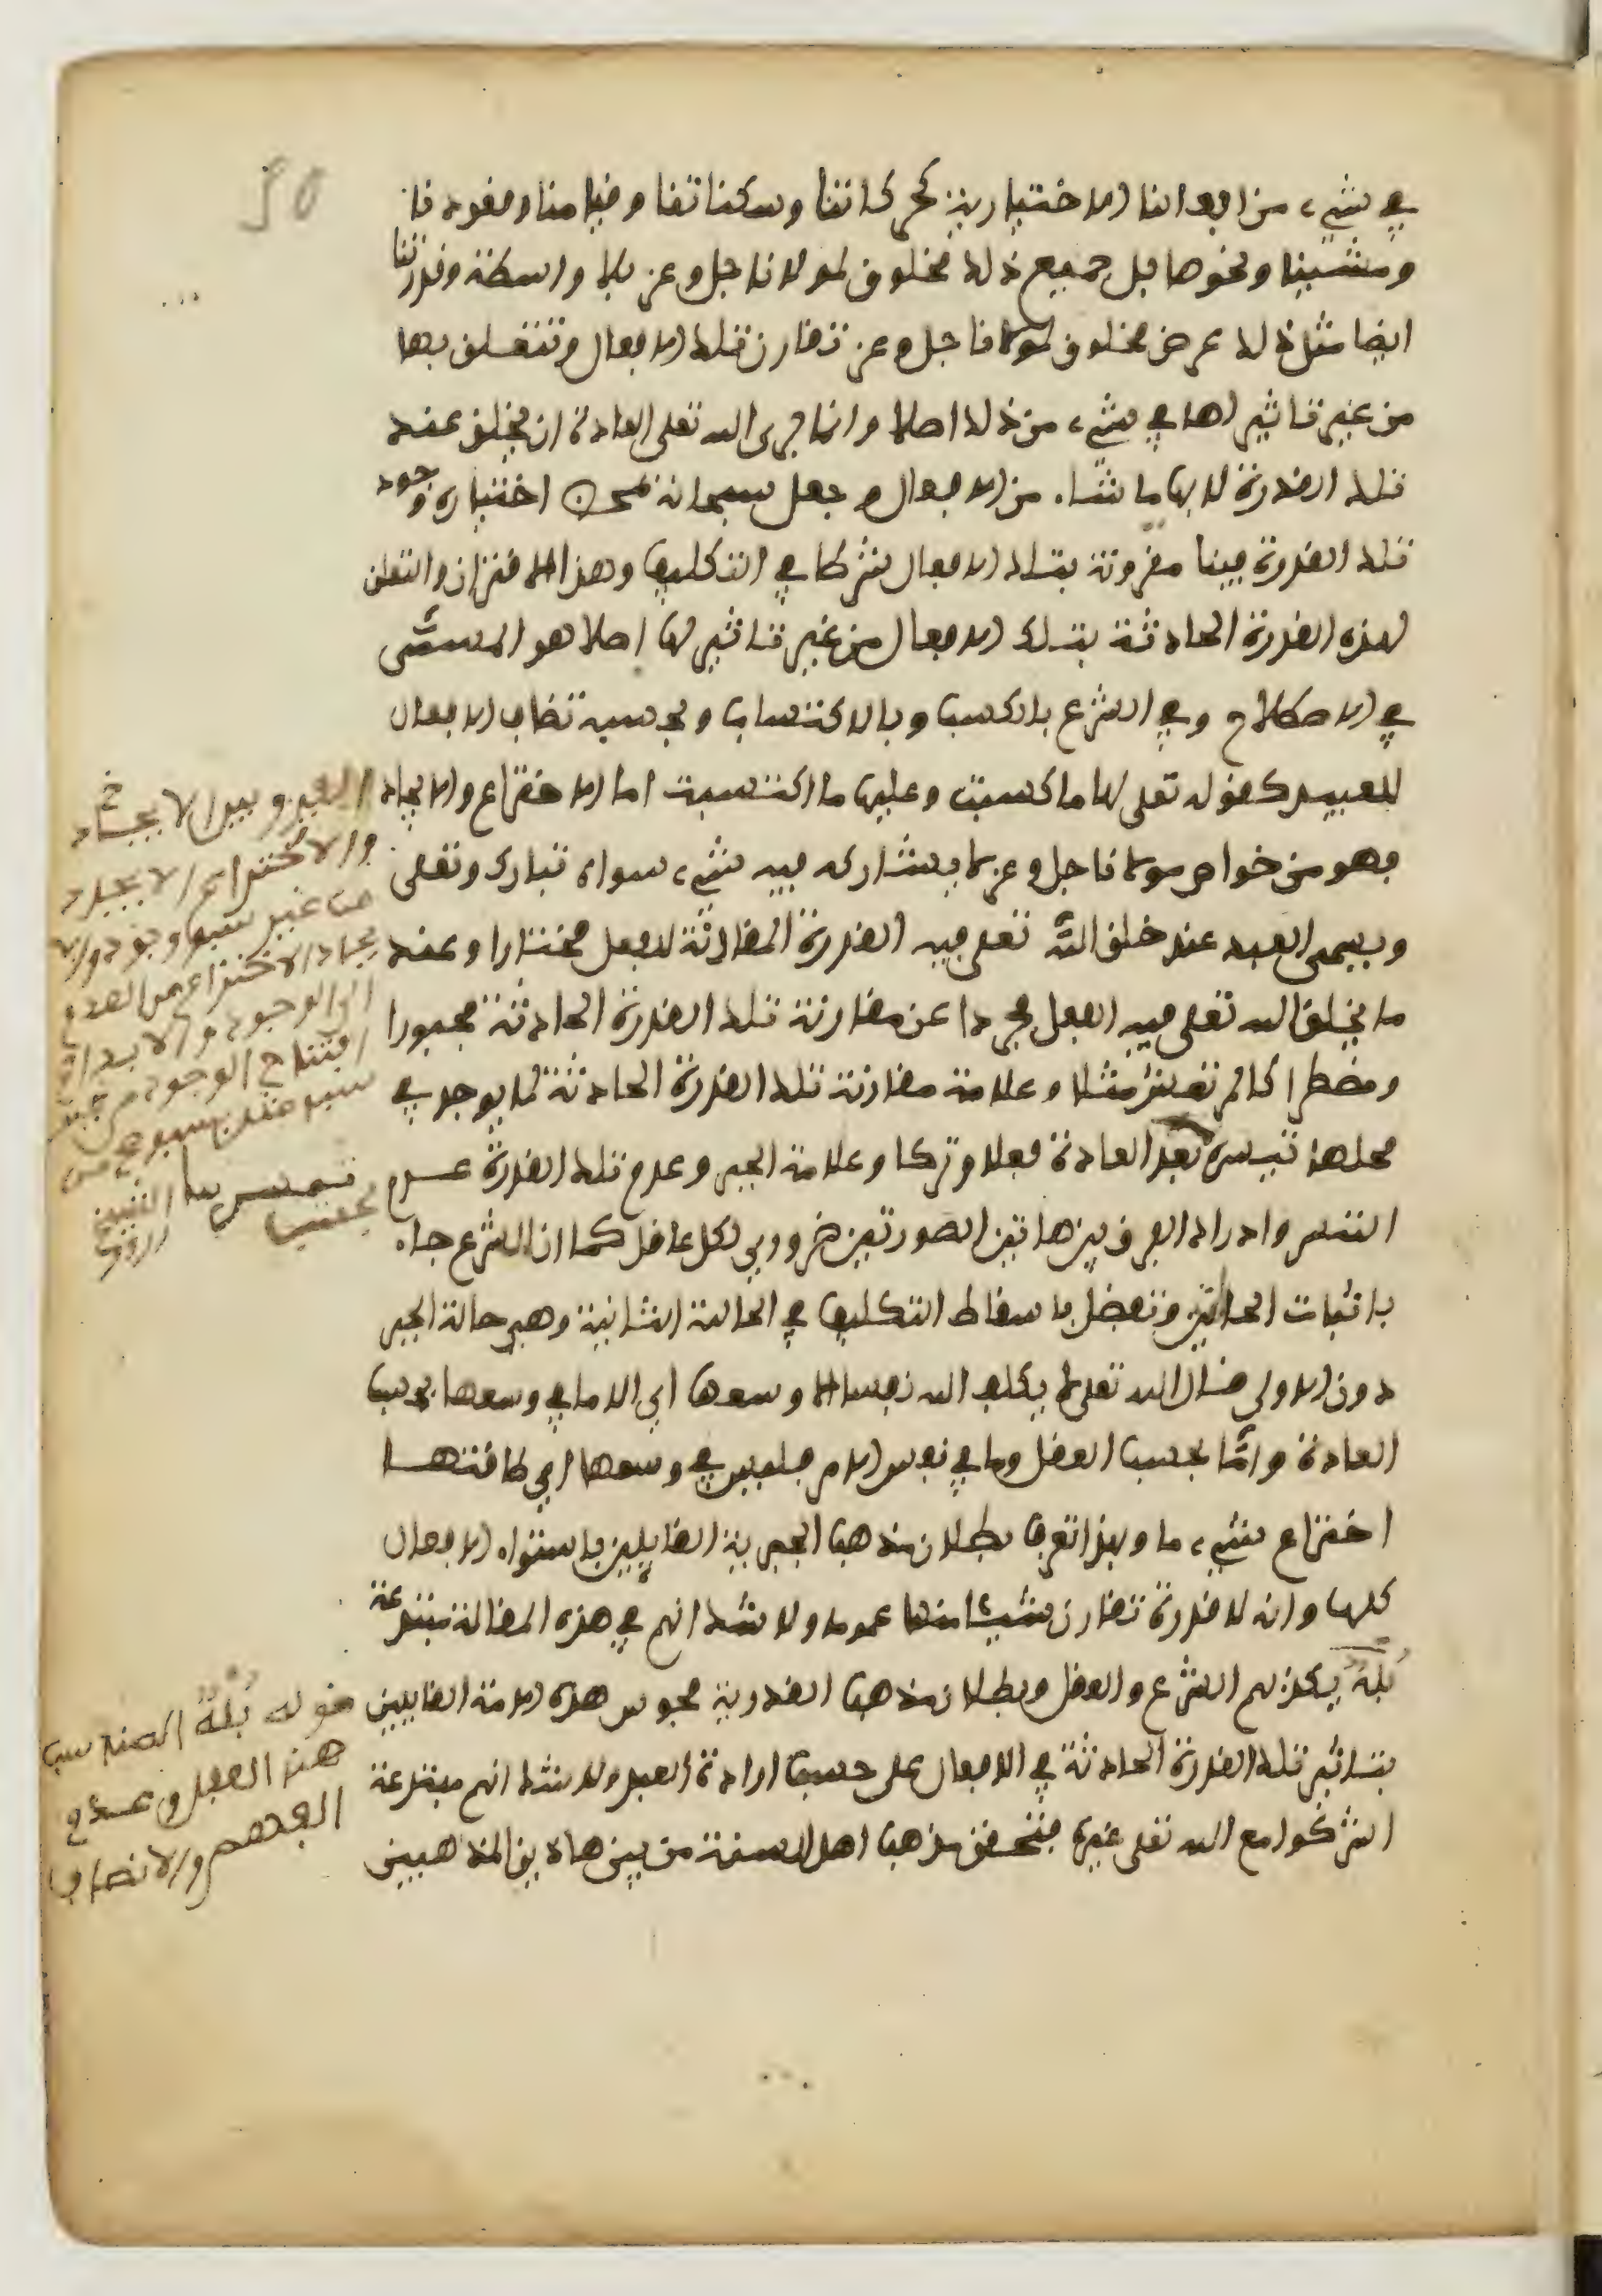 في شيء من افعالنا الاختيارية كحركاتنا وسكناتنا وقيامنا وقعودنا
ومشينا ونحوها بل جميع ذلك مخلوق لمولانا جل وعز بلا واسطة وقدرتنا
ايضا مثل ذلك عرض مخلوق لمولانا جل وعز تقارن تلك الافعال وتتعلق بها
من غير تاثير لها في شيء من ذلك اصلا وانما اجرى الله تعلى العادة ان يخلق عند
تلك القدرة لا بها ما شاء من الافعال وجعل سبحانه بمحض اختياره وجود
تلك القدرة فينا مقرونة بتلك الافعال شرطا في التكليف وهذا الاقتران والتعلق
لهذه القدرة الحادثة بتلك الافعال من غير تاثير لها اصلا هو المسمى
في الاصطلاح وفي الشرع بالكسب وبالاكتساب وبحسبه تضاف الافعال
للعبيد كقوله تعلى لها ما كسبت وعليها ما اكتسبت اما الاختراع والايجاد
فهو من خواص مولانا جل وعز لا يشاركه فيه شيء سواه تبارك وتعلى
ويسمى العبد عند خلق الله تعلى فيه القدرة المقارنة للفعل مختارا وعند
ما يخلق الله تعلى فيه الفعل مجردا عن مقارنة تلك القدرة الحادثة مجبورا
ومضطرا كالمرتعش مثلا وعلامة مقارنة تلك القدرة الحادثة لما يوجد في
محلها تيسره بعد العادة فعلا وتركا وعلامة الجبر وعدم تلك القدرة عدم
التيسر وادراك الفرق بين هاتين الصورتين ضروري لكل عاقل كما ان الشرع جاء
باثبات الحالتين وتفضل باسقاط التكليف في الحالة الثانية وهي حالة الجبر
دون الاولى قال الله تعلى لا يكلف الله نفسا الا وسعها اي الا ما في وسعها بحسب
العادة واما بحسب العقل وما في نفس الامر فليس في وسعها اي طاقتها
اختراع شيء ما وبهذا تعرف بطلان مذهب الجبرية القايلين باستواء الافعال
كلها وانه لا قدرة تقارن شيئا منها عموما ولا شك انهم في هذه المقالة مبتدعة
بُلْهٌ يكذبهم الشرع والعقل وبطلان مذهب القدرية مجوس هذه الامة القايلين
بتاثير تلك القدرة الحادثة في الافعال على حسب ارادة العبد ولا شك انهم مبتدعة
اشركوا مع الله تعلى غيره فتحقق مذهب اهل السنة من بين هاذين المذهبين
وبين الايجاد
والاختراع الايجاد
من غير سبق وجود
الاختراع من العدم
الى الوجود والابداء
افتتاح الوجود من غير
قوله بُلْهٌ المناسب
هنا العقل وعدم
الفهم والانصاف